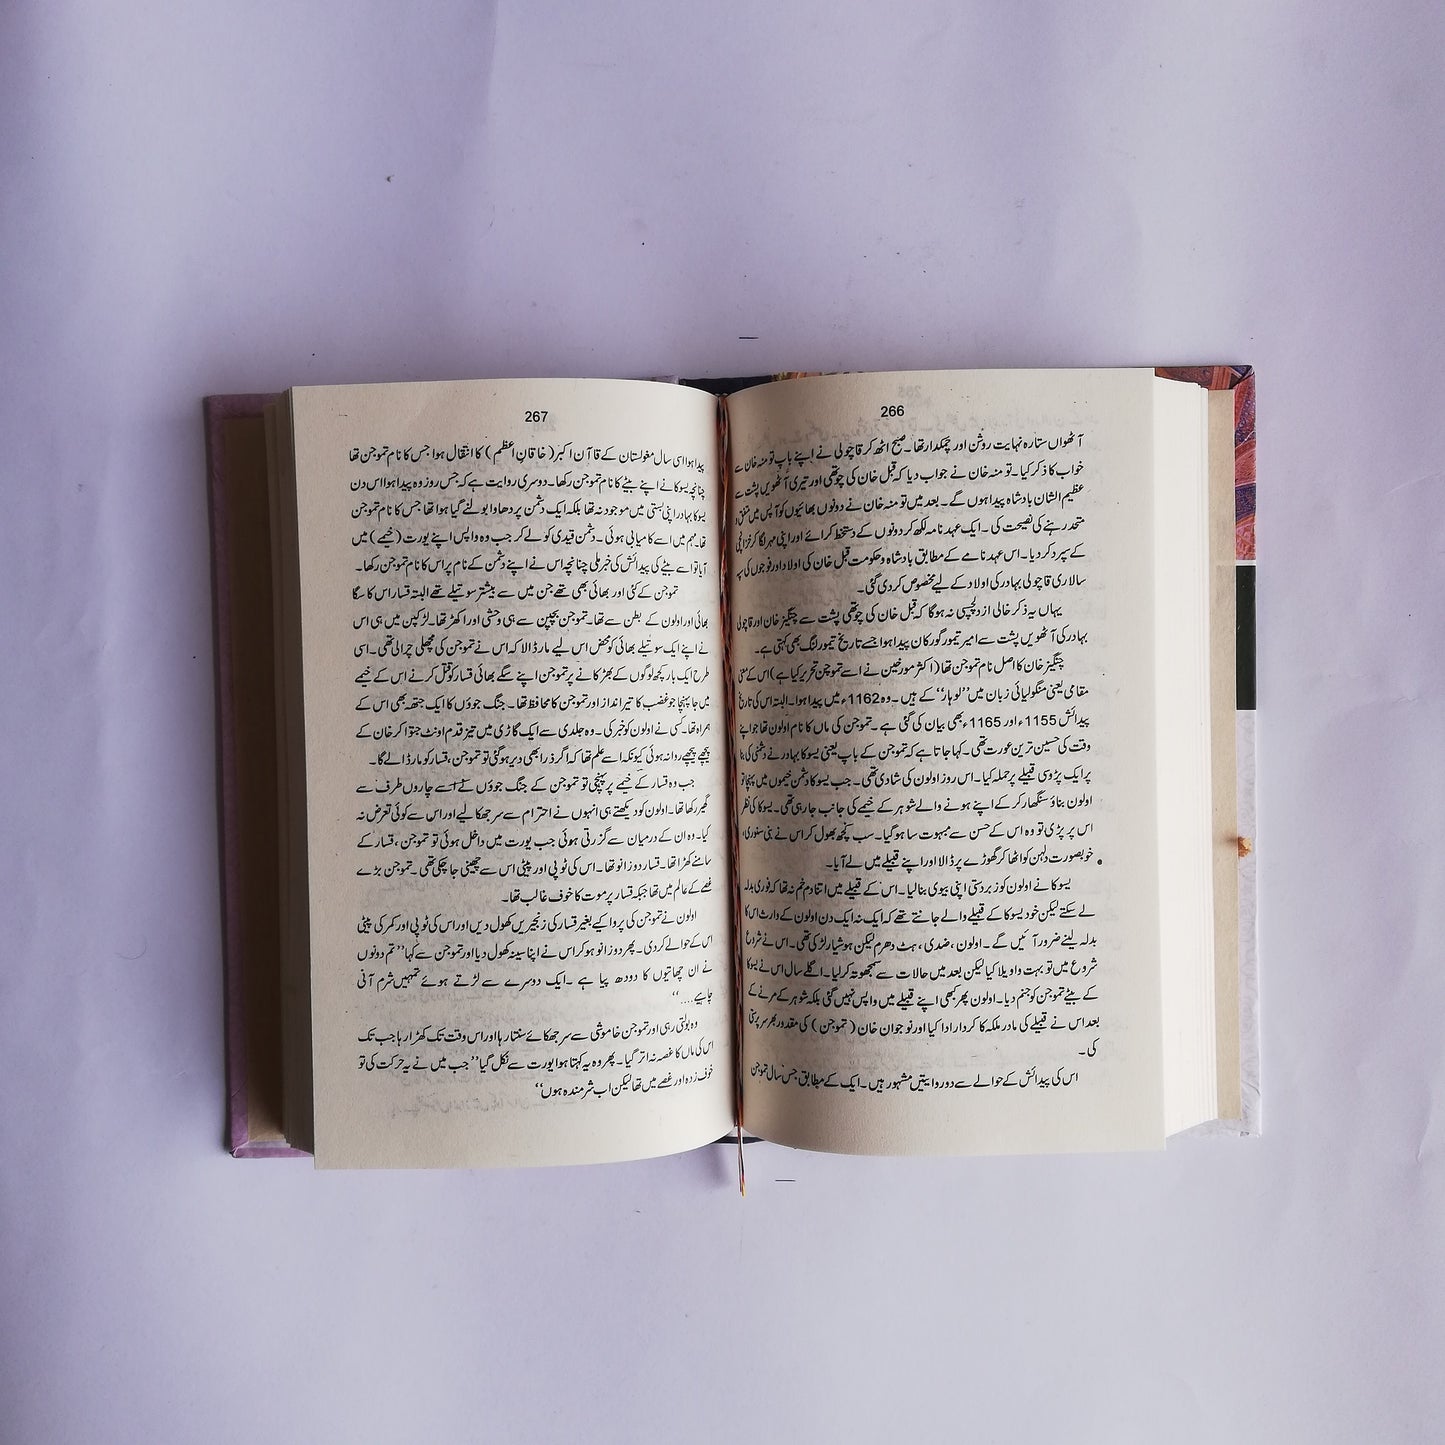 266
آٹھواں ستارہ نہایت روشن اور چمکدار تھا۔ صبح اٹھ کر قاچولی نے اپنے باپ تومنہ خان سے
خواب کا ذکر کیا۔ تومنہ خان نے جواب دیا کہ قبل خان کی چوتھی اور تیری آٹھویں پشت سے
عظیم الشان بادشاہ پیدا ہوں گے۔ بعد میں تومنہ خان نے دونوں بھائیوں کو آپس میں متفق و
متحد رہنے کی نصیحت کی۔ ایک عہد نامہ لکھ کر دونوں کے دستخط کرائے اور اپنی مہر لگا کر خزانچی
کے سپرد کر دیا۔ اس عہد نامے کے مطابق بادشاہ و حکومت قبل خان کی اولاد اور فوجوں کی سپہ
سالاری قاچولی بہادر کی اولاد کے لیے مخصوص کر دی گئی۔
یہاں یہ ذکر خالی از دلچسپی نہ ہوگا کہ قبل خان کی چوتھی پشت سے چنگیز خان اور قاچولی
بہادر کی آٹھویں پشت سے امیر تیمور گورکان پیدا ہوا جسے تاریخ تیمور لنگ بھی کہتی ہے۔
چنگیز خان کا اصل نام تموجن تھا (اکثر مورخین نے اسے تموچن تحریر کیا ہے) اس کے معنی
مقامی یعنی منگولیائی زبان میں ’’لوہار‘‘ کے ہیں۔ وہ 1162ء میں پیدا ہوا۔ البتہ اس کی تاریخ
پیدائش 1155ء اور 1165ء بھی بیان کی گئی ہے۔ تموجن کی ماں کا نام اولون تھا جو اپنے
وقت کی حسین ترین عورت تھی۔ کہا جاتا ہے کہ تموجن کے باپ یعنی یسوکا بہادر نے دشمنی کی بنا
پر ایک پڑوسی قبیلے پر حملہ کیا۔ اس روز اولون کی شادی تھی۔ جب یسوکا دشمن خیموں میں پہنچا تو
اولون بناؤ سنگھار کر کے اپنے ہونے والے شوہر کے خیمے کی جانب جا رہی تھی۔ یسوکا کی نظر
اس پر پڑی تو وہ اس کے حسن سے مبہوت سا ہو گیا۔ سب کچھ بھول کر اس نے بنی سنوری،
خوبصورت دلہن کو اٹھا کر گھوڑے پر ڈالا اور اپنے قبیلے میں لے آیا۔
یسوکا نے اولون کو زبردستی اپنی بیوی بنا لیا۔ اس کے قبیلے میں اتنا دم خم نہ تھا کہ فوری بدلہ
لے سکتے لیکن خود یسوکا کے قبیلے والے جانتے تھے کہ ایک نہ ایک دن اولون کے وارث اس کا
بدلہ لینے ضرور آئیں گے۔ اولون، ضدی، ہٹ دھرم لیکن ہوشیار لڑکی تھی۔ اس نے شروع
شروع میں تو بہت واویلا کیا لیکن بعد میں حالات سے سمجھوتہ کر لیا۔ اگلے سال اس نے یسوکا
کے بیٹے تموجن کو جنم دیا۔ اولون پھر کبھی اپنے قبیلے میں واپس نہیں گئی بلکہ شوہر کے مرنے کے
بعد اس نے قبیلے کی مادر ملکہ کا کردار ادا کیا اور نوجوان خان (تموجن) کی مقدور بھر سرپرستی
کی۔
اس کی پیدائش کے حوالے سے دو روایتیں مشہور ہیں۔ ایک کے مطابق جس سال تموجن
267
پیدا ہوا اسی سال مغولستان کے قاآن اکبر (خاقانِ اعظم) کا انتقال ہوا جس کا نام تموجن تھا
چنانچہ یسوکا نے اپنے بیٹے کا نام تموجن رکھا۔ دوسری روایت ہے کہ جس روز وہ پیدا ہوا اس دن
یسوکا بہادر اپنی بستی میں موجود نہ تھا بلکہ ایک دشمن پر دھاوا بولنے گیا ہوا تھا جس کا نام تموجن
تھا۔ مہم میں اسے کامیابی ہوئی۔ دشمن قیدی کو لے کر جب وہ واپس اپنے یورت (خیمے) میں
آیا تو اسے بیٹے کی پیدائش کی خبر ملی چنانچہ اس نے اپنے دشمن کے نام پر اس کا نام تموجن رکھا۔
تموجن کے کئی اور بھائی بھی تھے جن میں سے بیشتر سوتیلے تھے البتہ قسار اس کا سگا
بھائی اور اولون کے بطن سے تھا۔ تموجن بچپن سے ہی وحشی اور اکھڑ تھا۔ لڑکپن میں ہی اس
نے اپنے ایک سوتیلے بھائی کو محض اس لیے مار ڈالا کہ اس نے تموجن کی مچھلی چرالی تھی۔ اسی
طرح ایک بار کچھ لوگوں کے بھڑکانے پر تموجن اپنے سگے بھائی قسار کو قتل کرنے اس کے خیمے
میں جا پہنچا جو غضب کا تیر انداز اور تموجن کا محافظ تھا۔ جنگ جوؤں کا ایک جتھہ بھی اس کے
ہمراہ تھا۔ کسی نے اولون کو خبر کی۔ وہ جلدی سے ایک گاڑی میں تیز قدم اونٹ جتوا کر خان کے
پیچھے پیچھے روانہ ہوئی کیونکہ اسے علم تھا کہ اگر ذرا بھی دیر ہو گئی تو تموجن، قسار کو مار ڈالے گا۔
جب وہ قسار کے خیمے پر پہنچی تو تموجن کے جنگ جوؤں نے اسے چاروں طرف سے
گھیر رکھا تھا۔ اولون کو دیکھتے ہی انہوں نے احترام سے سر جھکا لیے اور اس سے کوئی تعرض نہ
کیا۔ وہ ان کے درمیان سے گزرتی ہوئی جب یورت میں داخل ہوئی تو تموجن، قسار کے
سامنے کھڑا تھا۔ قسار دوزانو تھا۔ اس کی ٹوپی اور پیٹی اس سے چھینی جا چکی تھی۔ تموجن بڑے
غصے کے عالم میں تھا جبکہ قسار پر موت کا خوف غالب تھا۔
اولون نے تموجن کی پروا کیے بغیر قسار کی زنجیریں کھول دیں اور اس کی ٹوپی اور کمر کی پیٹی
اس کے حوالے کر دی۔ پھر دوزانو ہو کر اس نے اپنا سینہ کھول دیا اور تموجن سے کہا ’’تم دونوں
نے ان چھاتیوں کا دودھ پیا ہے۔ ایک دوسرے سے لڑتے ہوئے تمہیں شرم آنی
چاہیے....‘‘
وہ بولتی رہی اور تموجن خاموشی سے سر جھکائے سنتا رہا اور اس وقت تک کھڑا رہا جب تک
اس کی ماں کا غصہ نہ اتر گیا۔ پھر وہ یہ کہتا ہوا یورت سے نکل گیا ’’جب میں نے یہ حرکت کی تو
خوف زدہ اور غصے میں تھا لیکن اب شرمندہ ہوں‘‘